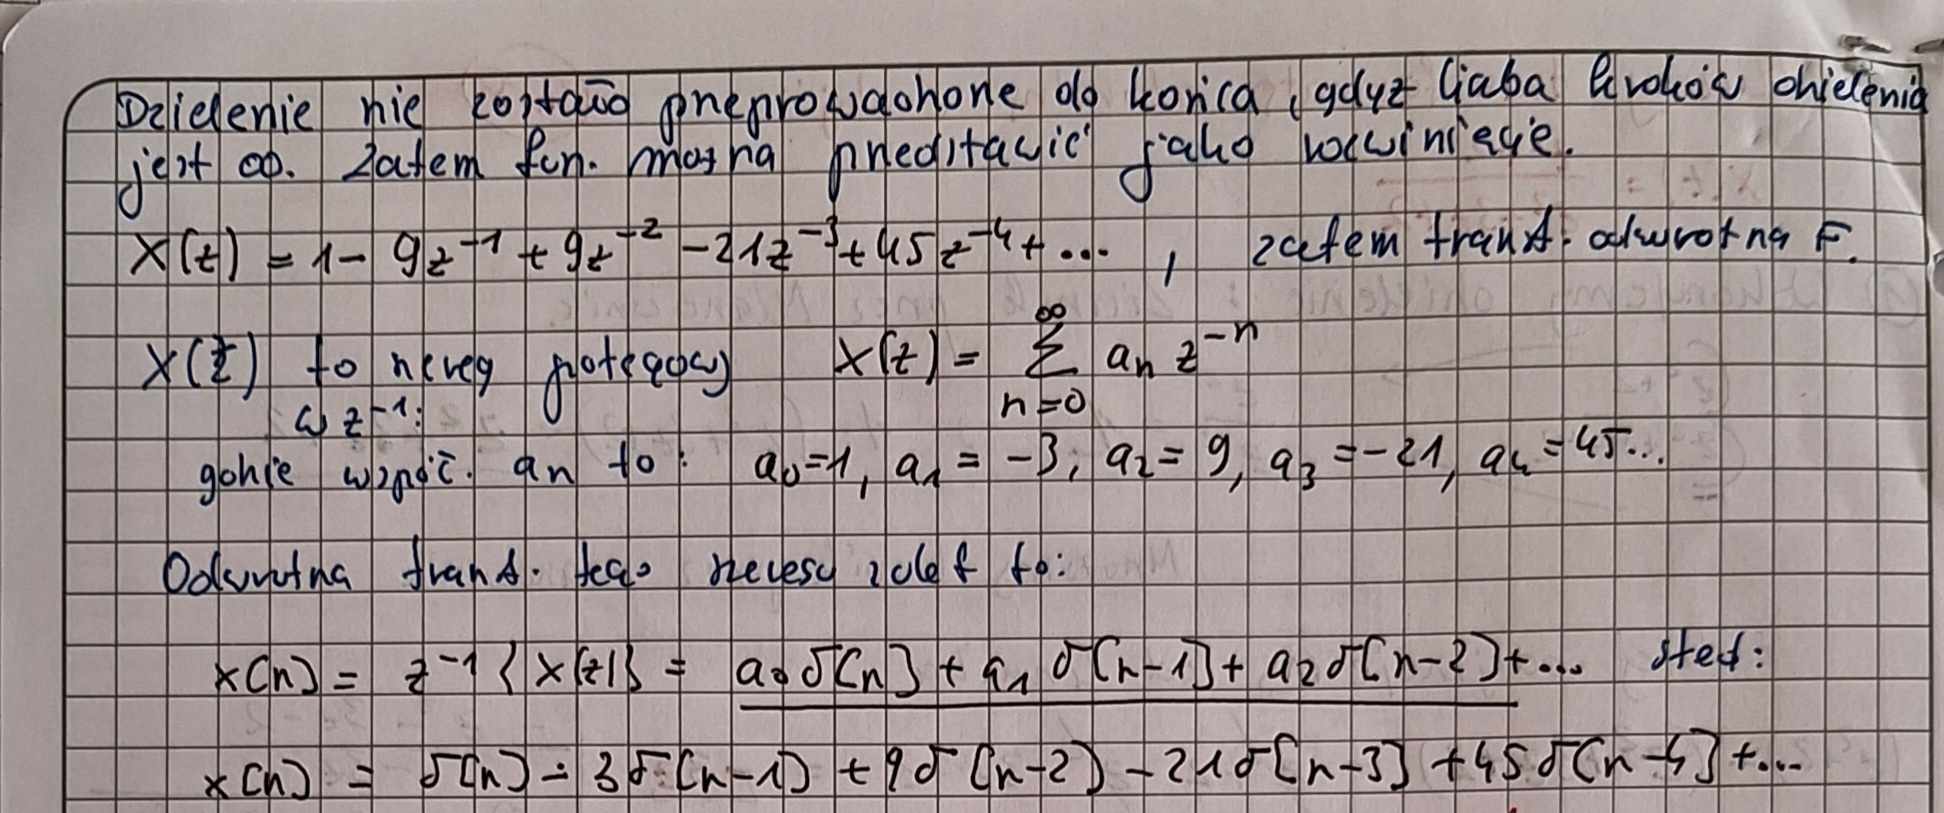 Dzielenie nie zostało przeprowadzone do końca, gdyż liczba kroków dzielenia
jest ∞. Zatem fun. można przedstawić jako rozwinięcie.
X(z) = 1 - 9z⁻¹ + 9z⁻² - 21z⁻³ + 45z⁻⁴ + ... , zatem transf. odwrotna F.
X(z) to szereg potęgowy X(z) = ∑_{n=0}^{∞} aₙ z⁻ⁿ
w z⁻¹:
gdzie współ. aₙ to: a₀=1, a₁ = -3, a₂ = 9, a₃ = -21, a₄ = 45...
Odwrotna transf. tego szeregu to:
x[n] = z⁻¹{X(z)} = a₀δ[n] + a₁δ[n-1] + a₂δ[n-2] + ... stąd:
x[n] = δ[n] - 3δ[n-1] + 9δ[n-2] - 21δ[n-3] + 45δ[n-4] + ...